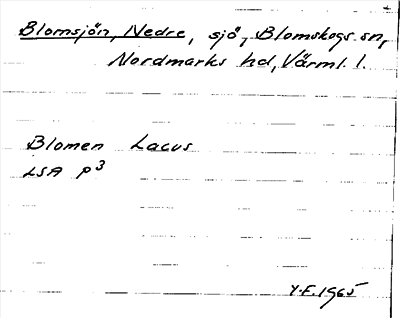 Blomsjön, Nedre, sjö, Blomskogs sn,
Nordmarks hd, Värml. l.
Blomen Lacus
LSA P³
Y.F. 1965